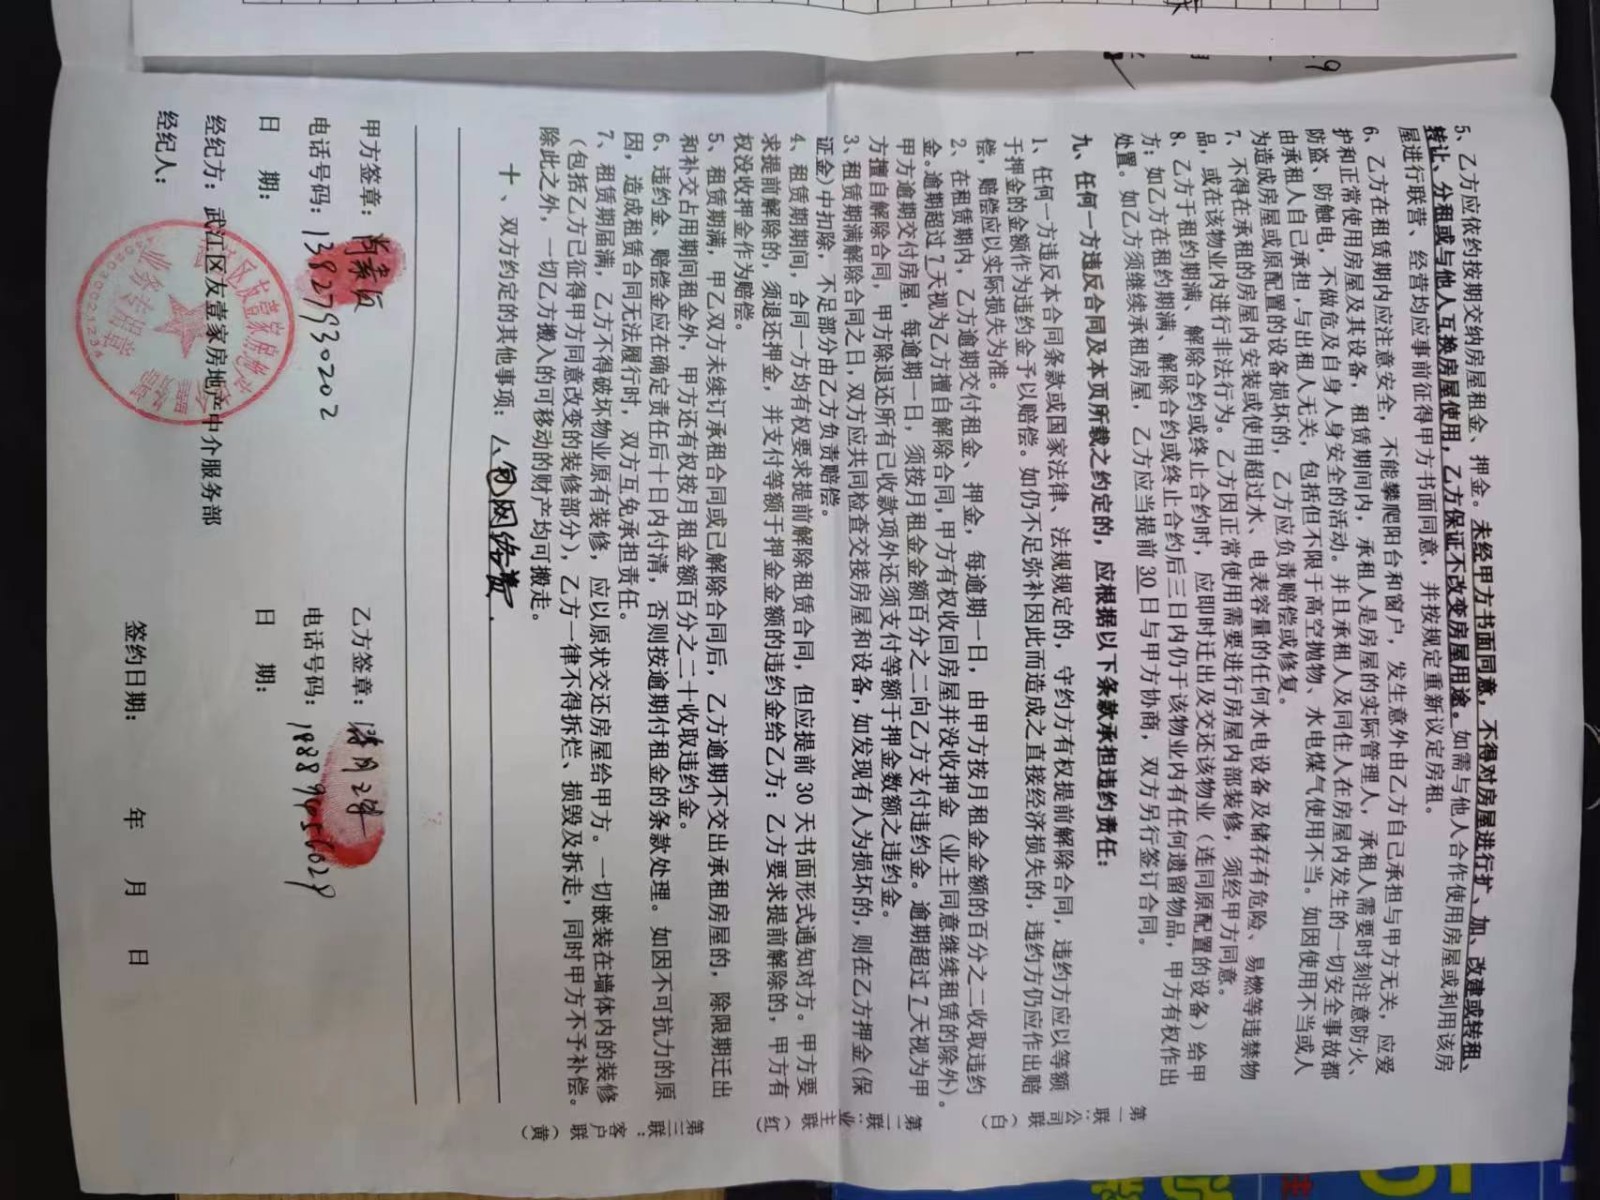 5、乙方应依约按期交纳房屋租金、押金。未经甲方书面同意,不得对房屋进行扩、加、改建或转租、
转让、分租或与他人互换房屋使用,乙方保证不改变房屋用途。如需与他人合作使用房屋或利用该房
屋进行联营、经营均应事前征得甲方书面同意,并按规定重新议定房租。
6、乙方在租赁期内应注意安全,不能攀爬阳台和窗户,发生意外由乙方自己承担与甲方无关,应爱
护和正常使用房屋及其设备,租赁期间内,承租人是房屋的实际管理人,承租人需要时刻注意防火、
防盗、防触电,不做危及自身人身安全的活动。并且承租人及同住人在房屋内发生的一切安全事故都
由承租人自己承担,与出租人无关,包括但不限于高空抛物、水电煤气使用不当。如因使用不当或人
为造成房屋或原配置的设备损坏的,乙方应负责赔偿或修复。
7、不得在承租的房屋内安装或使用超过水、电表容量的任何水电设备及储存有危险、易燃等违禁物
品,或在该物业内进行非法行为。乙方因正常使用需要进行房屋内部装修,须经甲方同意。
8、乙方于租约期满、解除合约或终止合约时,应即时迁出及交还该物业(连同原配置的设备)给甲
方;如乙方在租约期满、解除合约或终止合约后三日内仍于该物业内有任何遗留物品,甲方有权作出
处置。如乙方须继续承租房屋,乙方应当提前30日与甲方协商,双方另行签订合同。
九、任何一方违反合同及本页所载之约定的,应根据以下条款承担违约责任:
1、任何一方违反本合同条款或国家法律、法规规定的,守约方有权提前解除合同,违约方应以等额
于押金的金额作为违约金予以赔偿。如仍不足弥补因此而造成之直接经济损失的,违约方仍应作出赔
偿,赔偿应以实际损失为准。
2、在租赁期内,乙方逾期交付租金、押金,每逾期一日,由甲方按月租金金额的百分之二收取违约
金。逾期超过7天视为乙方擅自解除合同,甲方有权收回房屋并没收押金(业主同意继续租赁的除外)。
甲方逾期交付房屋,每逾期一日,须按月租金金额百分之二向乙方支付违约金。逾期超过7天视为甲
方擅自解除合同,甲方除退还所有已收款项外还须支付等额于押金数额之违约金。
3、租赁期满解除合同之日,双方应共同检查交接房屋和设备,如发现有人为损坏的,则在乙方押金(保
证金)中扣除,不足部分由乙方负责赔偿。
4、租赁期期间,合同一方均有权要求提前解除租赁合同,但应提前30天书面形式通知对方。甲方要
求提前解除的,须退还押金,并支付等额于押金金额的违约金给乙方;乙方要求提前解除的,甲方有
权没收押金作为赔偿。
5、租赁期满,甲乙双方未续订承租合同或已解除合同后,乙方逾期不交出承租房屋的,除限期迁出
和补交占用期间租金外,甲方还有权按月租金额百分之二十收取违约金。
6、违约金、赔偿金应在确定责任后十日内付清,否则按逾期付租金的条款处理。如因不可抗力的原
因,造成租赁合同无法履行时,双方互免承担责任。
7、租赁期届满,乙方不得破坏物业原有装修,应以原状交还房屋给甲方。一切嵌装在墙体内的装修
(包括乙方已征得甲方同意改变的装修部分),乙方一律不得拆烂、损毁及拆走,同时甲方不予补偿。
除此之外,一切乙方搬入的可移动的财产均可搬走。
十、双方约定的其他事项:1、包网络费.
甲方签章:
电话号码:13827930202
日 期:
乙方签章:
电话号码:19889656029
日 期:
经纪方:武江区友壹家房地产中介服务部
经纪人:
签约日期: 年 月 日
业务专用章
第一联:公司联(白)
第二联:业主联(红)
第三联:客户联(黄)